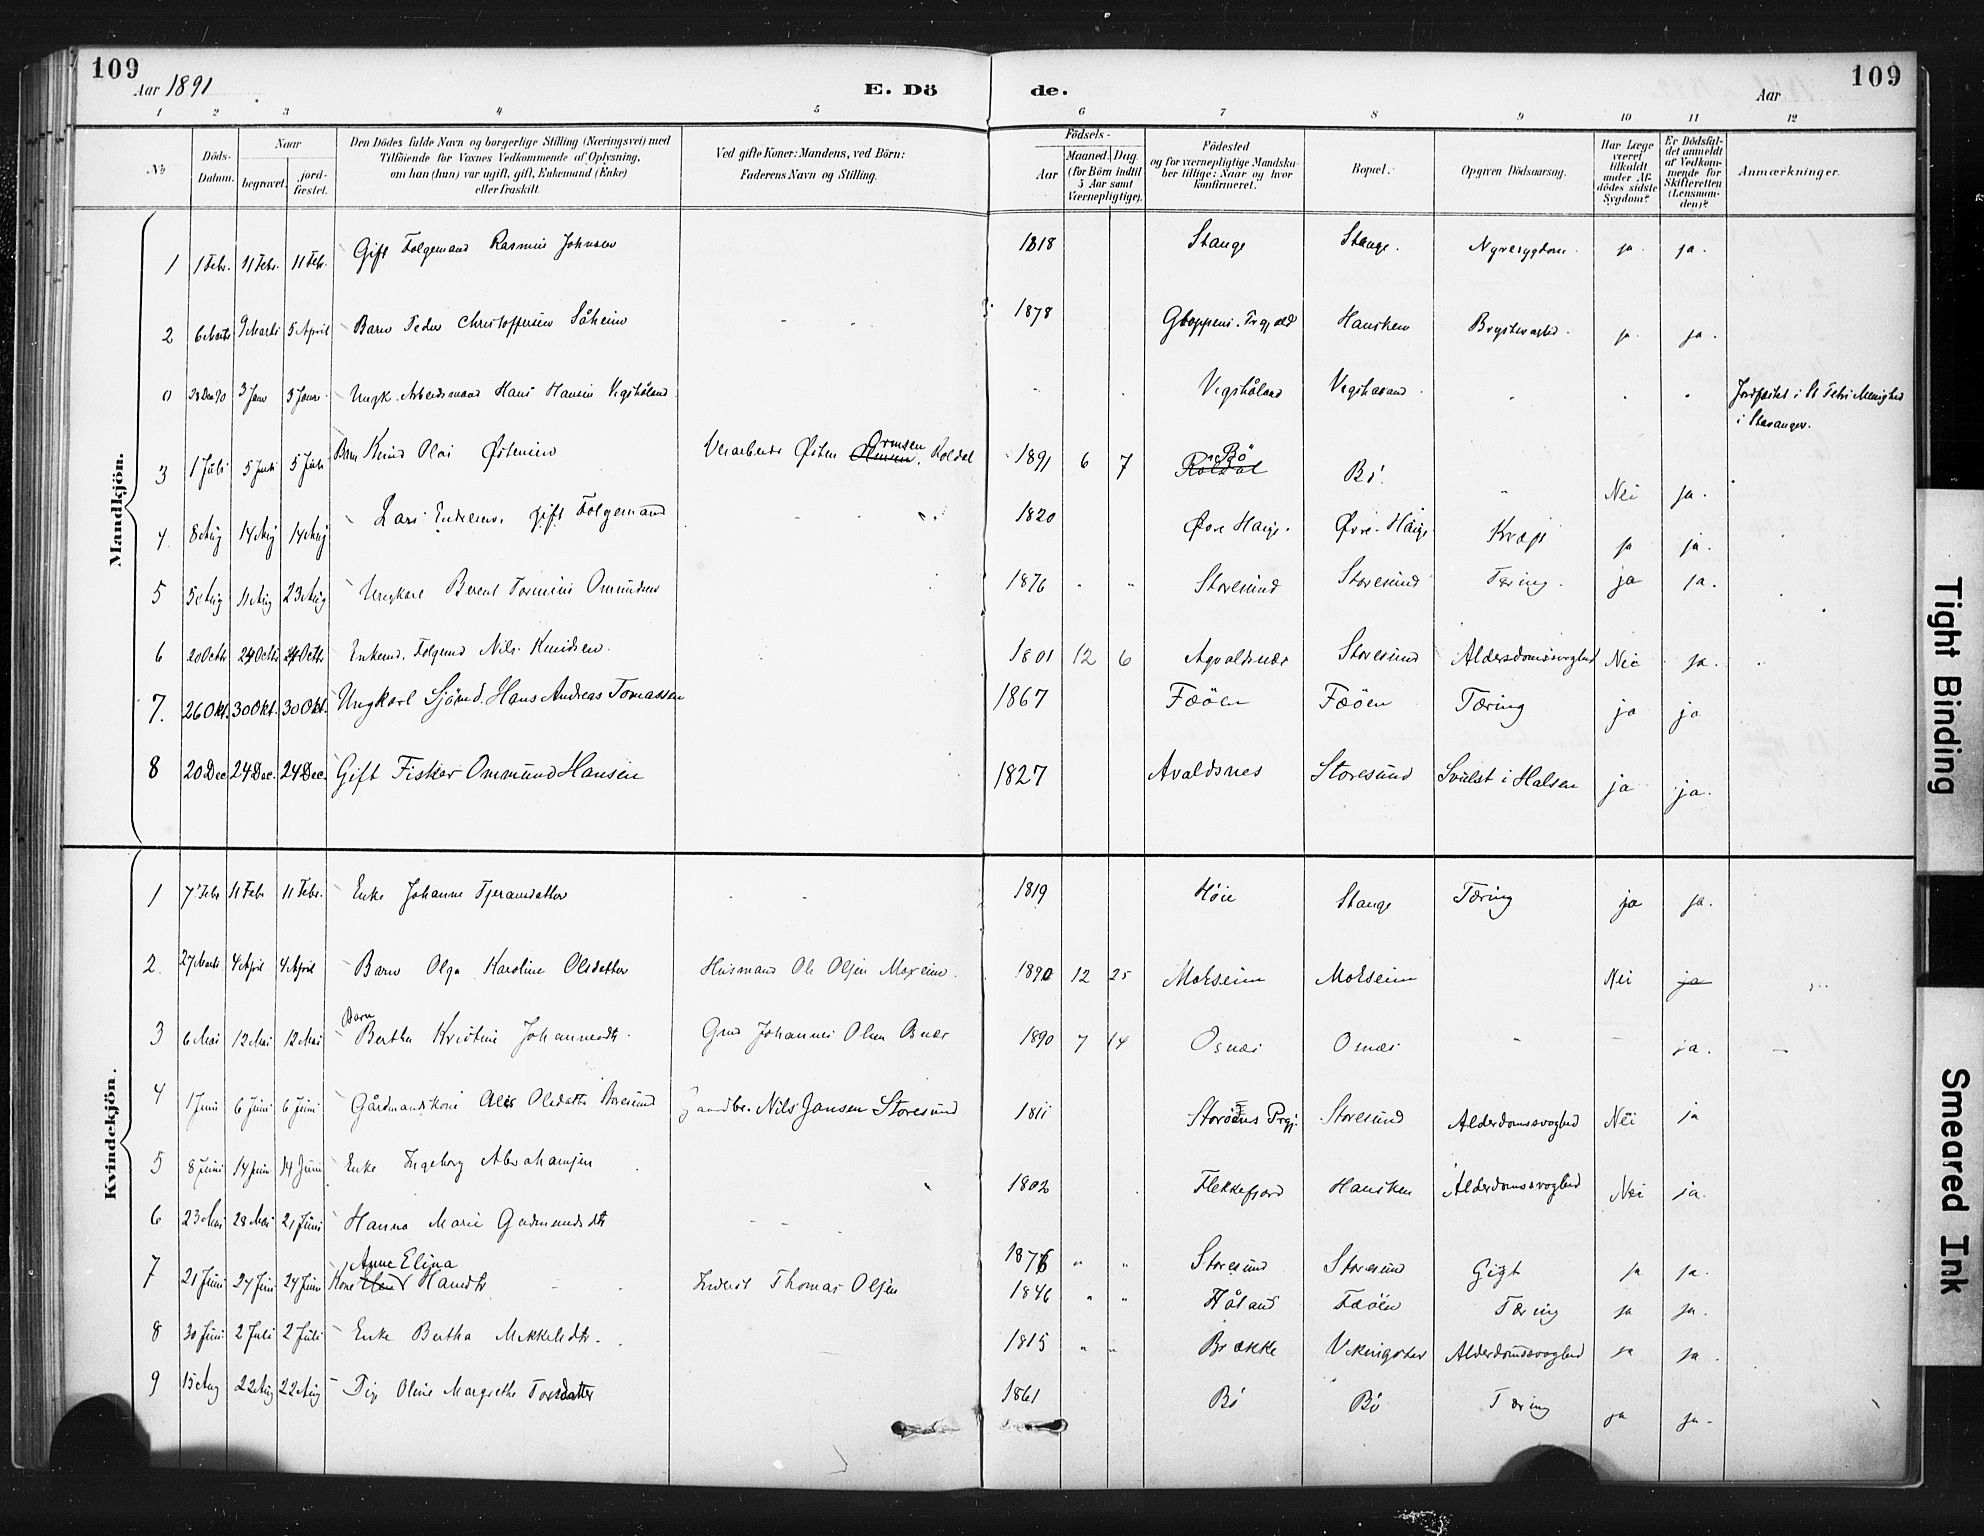 109
Aar 1891
E. Dö
de.
Aar
109
1 2 3 4 5 6 7 8 9 10 11 12
No
Döds-Datum.
Naar
begravet.
jord-fæstet.
Den Dödes fulde Navn og borgerlige Stilling (Næringsvei) med
Tilföiende for Voxnes Vedkommende af Oplysning,
om han (hun) var ugift, gift, Enkemand (Enke)
eller fraskilt.
Ved gifte Koner: Mandens, ved Börn:
Faderens Navn og Stilling.
Födsels-
Aar
Maaned. Dag.
(for Börn indtil
5 Aar samt
Værnepligtige).
Födested
og for værnepligtige Mandska-
ber tillige: Naar og hvor
konfirmeret.
Bopæl.
Opgiven Dödsaarsag.
Har Læge
været
tilkaldt
under Af-
dödes sidste
Sygdom?
Er Dödsfal-
det anmeldt
af Vedkom-
mende for
Skifteretten
(Lensman-
den)?
Anmærkninger.
Mandkjön.
1 1 Febr. 11 Febr. 11 Febr. Gift Folgemand Rasmus Johnsen 1818 Stange Stange. Nyresygdom ja ja.
2 6 Marts 9 Marts 5 April Barn Peder Christoffersen Såheim 1878 Gloppens Prgjæld Hausken Brystsvaghed. ja ja.
0 3 Janr 3 Janr. Ungk. Arbeidsmand Hans Hansen Vigshåland Vigshåland Jordfæstet i St Petri Menighed
i Stavanger.
3 1 Juli 5 Juli 5 Juli Barn Knud Olai Østensen Østen Olausen Ormsen, Roldal 1891 6 7 Roldal Bö Bö. Nei ja.
4 8 Aug 14 Aug 14 Aug Lars Endresen. gift Folgemand 1820 Øvre Hauge. Øvre-Hauge Kræft ja ja.
5 5 Aug 11 Aug 23 Aug Ungkarl Berent Tormius Omundsen 1876 Storesund Storesund Tæring. ja ja.
6 20 Octb 24 Octb 24 Octb Enkemd. Folgemd Nils Knudsen. 1801 12 6 Agvaldsnæs Storesund Aldersdomssvaghed Nei ja.
7. 26 Okt. 30 Okt. 30 Okt. Ungkarl Sjömd. Hans Andreas Tomassen 1867 Fæöen Fæöen Tæring ja ja
8 20 Dec 24 Dec. 24 Dec. Gift Fisker Ommund Hansen 1827 Avaldsnes Storesund Svulst i Halsen ja ja.
Kvindekjön.
1 7 Febr 11 Febr 11 Febr. Enke Johanne Tjeransdatter 1819 Höie Stange Tæring ja ja.
2. 27 Marts 4 April 4 April Barn Olga Karoline Olsdatter Husmand Ole Olsen Moxeim. 1890 12 25 Mokseim Mokseim Nei ja
3 6 Mai 12 Mai 12 Mai Barn Bertha Kristine Johannesdt. Grd Johannes Olsen Osnæs 1890 7 14 Osnæs Osnæs ja.
4 1 Juni 6 Juni 6 Juni Gårdmandskone Alis Olsdatter Storesund Gaardbr. Nils Jansen Storesund 1811 Storöens Prgj. Storesund Alderdomssvaghed Nei ja
5 8 Juni 14 Juni 14 Juni Enke Ingeborg Abrahamsen 1802 Flekkefjord Hausken Alderdomssvaghed Nei ja.
6 23 Mai 28 Mai 21 Juni Hanna Marie Gudmundsdtr 1876 Storesund Storesund Gigt ja ja.
7 21 Juni 24 Juni 24 Juni Kone Anne Elina Hansdtr Inderst Thomas Olsen 1846 Håland Fæöen Tæring ja ja.
8 30 Juni 2 Juli 2 Juli Enke Bertha Mikkelsdtr. 1815 Brække Vikingstad Alderdomssvaghed ja ja.
9 15 Aug 22 Aug 22 Aug Pige Oline Margrethe Torsdatter 1861 Bö Bö Tæring ja ja.
Tight Binding
Smeared Ink